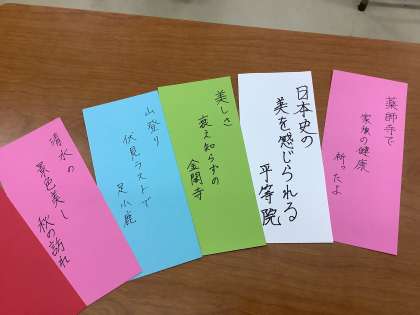 薬師寺で
家族の健康
祈ったよ
日本史の
美を感じられる
平等院
美しさ
衰え知らずの
金閣寺
山登り
伏見ラストで
足小鹿
清水の
景色美し
秋の訪れ